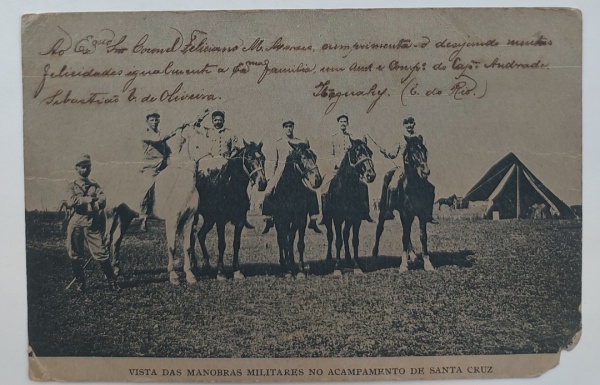 Ao Exmo Snr Coronel Feliciano M. Moraes, cumprimenta-o desejando muitas
felicidades igualmente a Exma familia, um Amo e Compo do Capm Andrade.
Sebastião V. de Oliveira. Itaguahy. (E. do Rio.)
VISTA DAS MANOBRAS MILITARES NO ACAMPAMENTO DE SANTA CRUZ